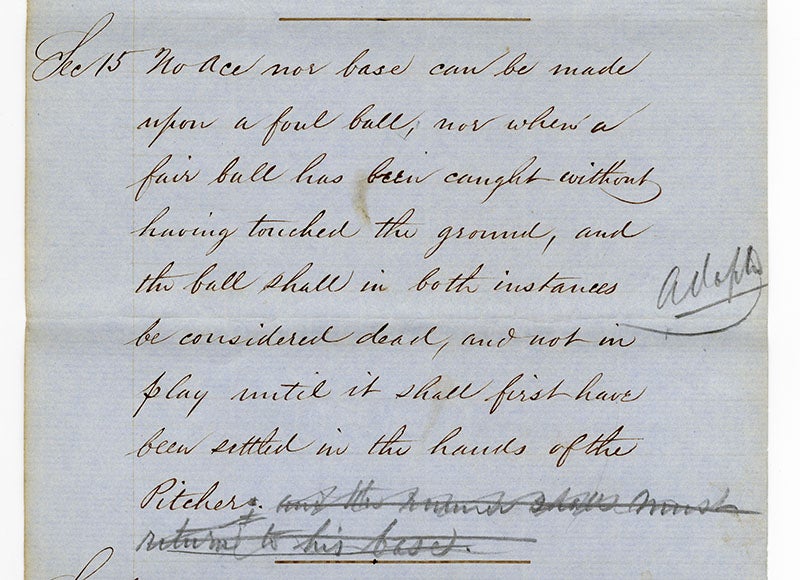 Sec 15 No Ace nor base can be made
upon a foul ball, nor when a
fair ball has been caught without
having touched the ground, and
the ball shall in both instances
Adopted
be considered dead, and not in
play until it shall first have
been settled in the hands of the
Pitcher; and the runner shall must
return to his base.